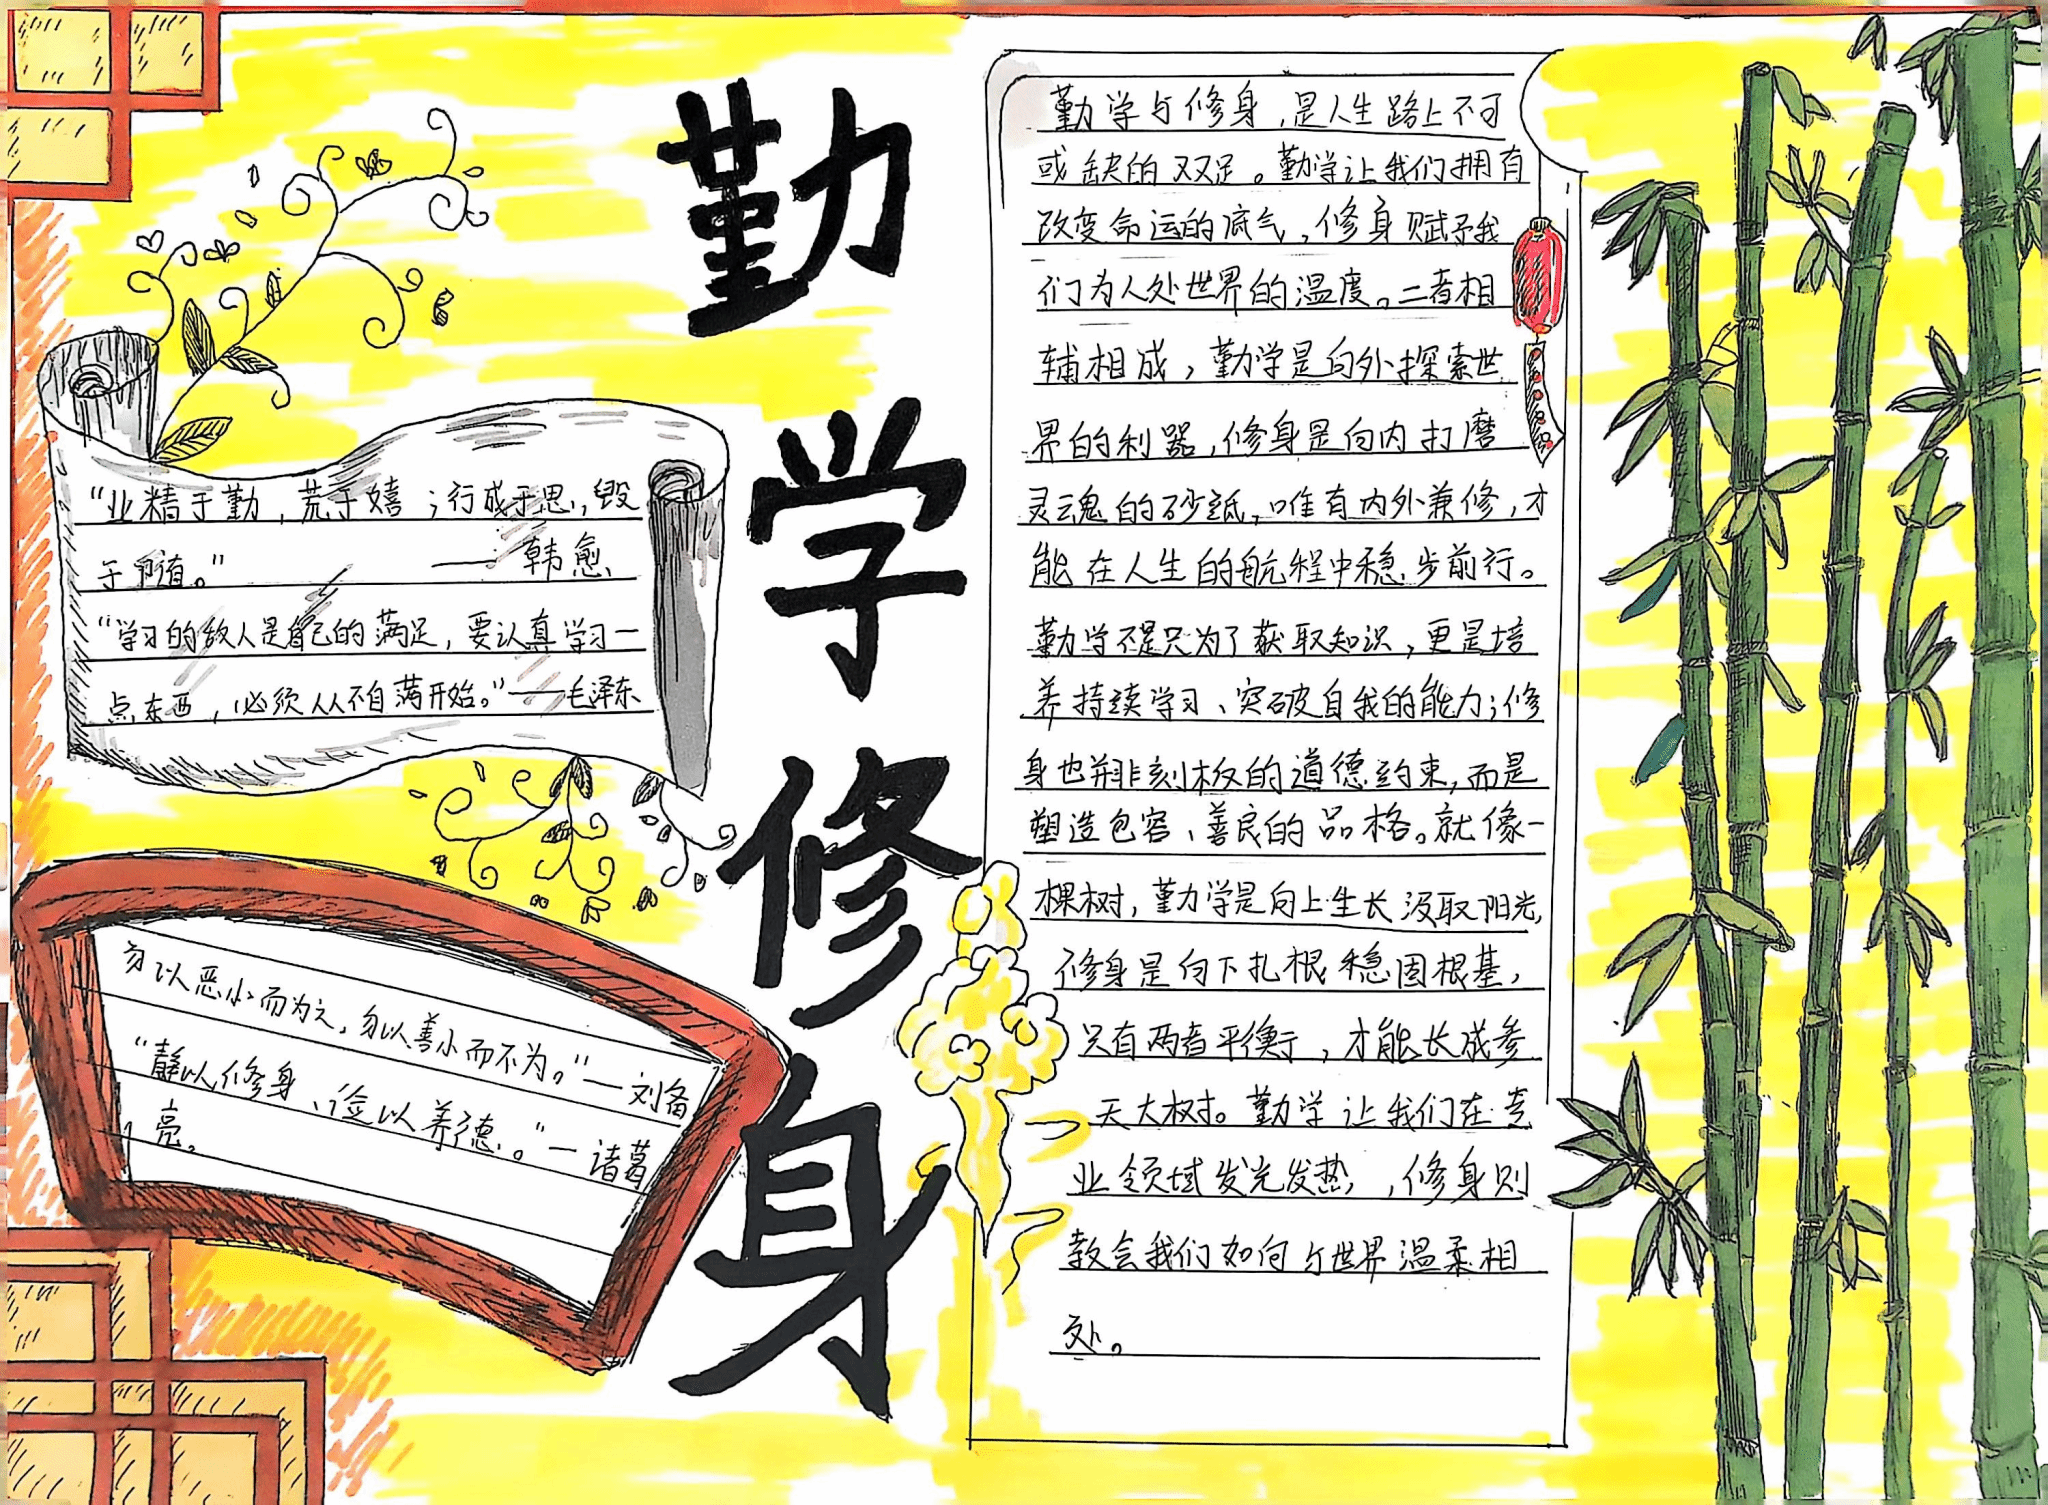 勤学修身
“业精于勤，荒于嬉；行成于思，毁
于随。” ——韩愈
“学习的敌人是自己的满足，要认真学习一
点东西，必须从不自满开始。”——毛泽东
勿以恶小而为之，勿以善小而不为。”—刘备
“静以修身、俭以养德。”—诸葛
亮。
勤学与修身，是人生路上不可
或缺的双足。勤学让我们拥有
改变命运的底气，修身赋予我
们为人处世界的温度。二者相
辅相成，勤学是向外探索世
界的利器，修身是向内打磨
灵魂的砂纸，唯有内外兼修，才
能在人生的航程中稳步前行。
勤学不是只为了获取知识，更是培
养持续学习、突破自我的能力；修
身也并非刻板的道德约束，而是
塑造包容、善良的品格。就像一
棵树，勤学是向上生长汲取阳光，
修身是向下扎根稳固根基，
只有两者平衡，才能长成参
天大树。勤学让我们在专
业领域发光发热，修身则
教会我们如何与世界温柔相
处。